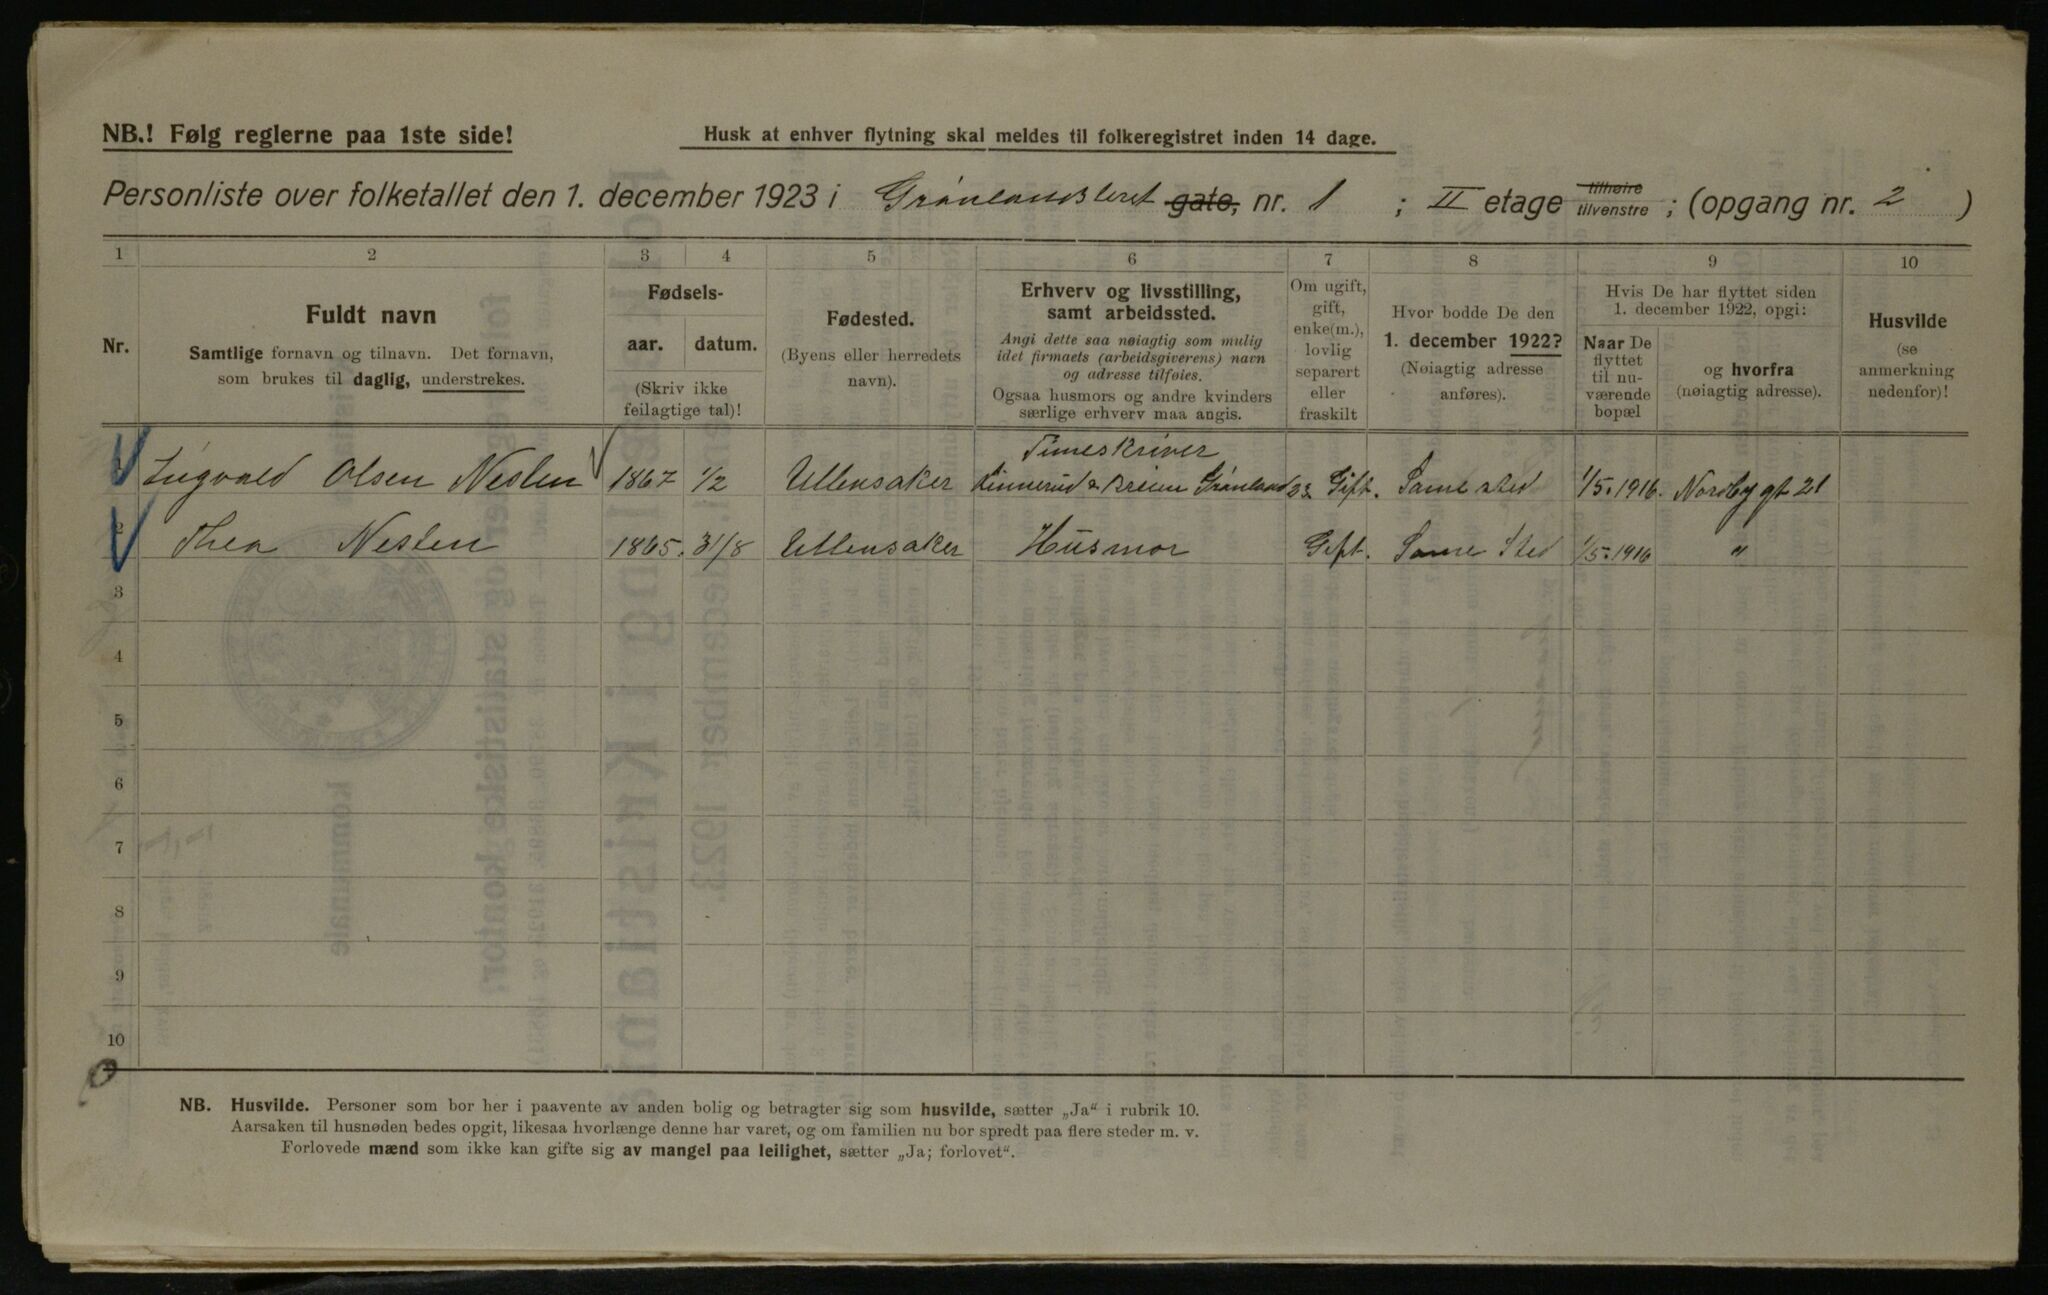 NB.! Følg reglerne paa 1ste side!
Husk at enhver flytning skal meldes til folkeregistret inden 14 dage.
Personliste over folketallet den 1. december 1923 i Grønlandsleret gate, nr. 1 ; II etage tilhøire tilvenstre ; (opgang nr. 2 )
1 2 3 4 5 6 7 8 9 10
Nr.
Fuldt navn
Samtlige fornavn og tilnavn. Det fornavn,
som brukes til daglig, understrekes.
Fødsels-
aar. datum.
(Skriv ikke
feilagtige tal)!
Fødested.
(Byens eller herredets
navn).
Erhverv og livsstilling,
samt arbeidssted.
Angi dette saa nøiagtig som mulig
idet firmaets (arbeidsgiverens) navn
og adresse tilføies.
Ogsaa husmors og andre kvinders
særlige erhverv maa angis.
Om ugift,
gift,
enke(m.),
lovlig
separert
eller
fraskilt
Hvor bodde De den
1. december 1922?
(Nøiagtig adresse
anføres).
Hvis De har flyttet siden
1. december 1922, opgi:
Naar De
flyttet
til nu-
værende
bopæl
og hvorfra
(nøiagtig adresse).
Husvilde
(se
anmerkning
nedenfor)!
Timeskriver
Ingvald Olsen Neslen 1867 1/2 Ullensaker Grønland 23 Gift. Samme sted 1/5. 1916. Nordby gt 21
2 Thea Neslen 1865. 31/8 Ullensaker Husmor Gift. Samme Sted 1/5. 1916 "
3
4
5
6
7
8
9
10
NB. Husvilde. Personer som bor her i paavente av anden bolig og betragter sig som husvilde, sætter „Ja“ i rubrik 10.
Aarsaken til husnøden bedes opgit, likesaa hvorlænge denne har varet, og om familien nu bor spredt paa flere steder m. v.
Forlovede mænd som ikke kan gifte sig av mangel paa leilighet, sætter „Ja; forlovet“.